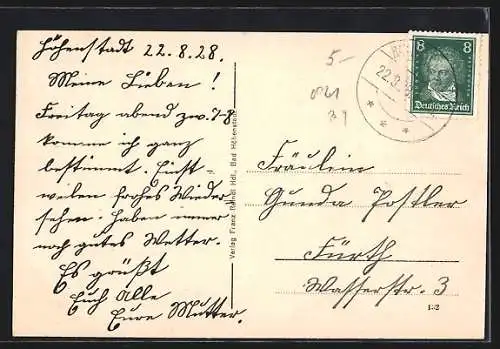 Höhenstadt 22.8.28.
Meine Lieben!
Freitag abend zw. 7-8
komme ich ganz
bestimmt. Einst-
weilen frohes Wieder-
sehen. haben immer
noch gutes Wetter.
Es grüßt
Euch alle
Eure Mutter.
Verlag Franz Hdl., Bad Höhenstadt
5-
8 8
Deutsches Reich
22.8.
Fräulein
Gunda Postler
Fürth
Wasserstr. 3